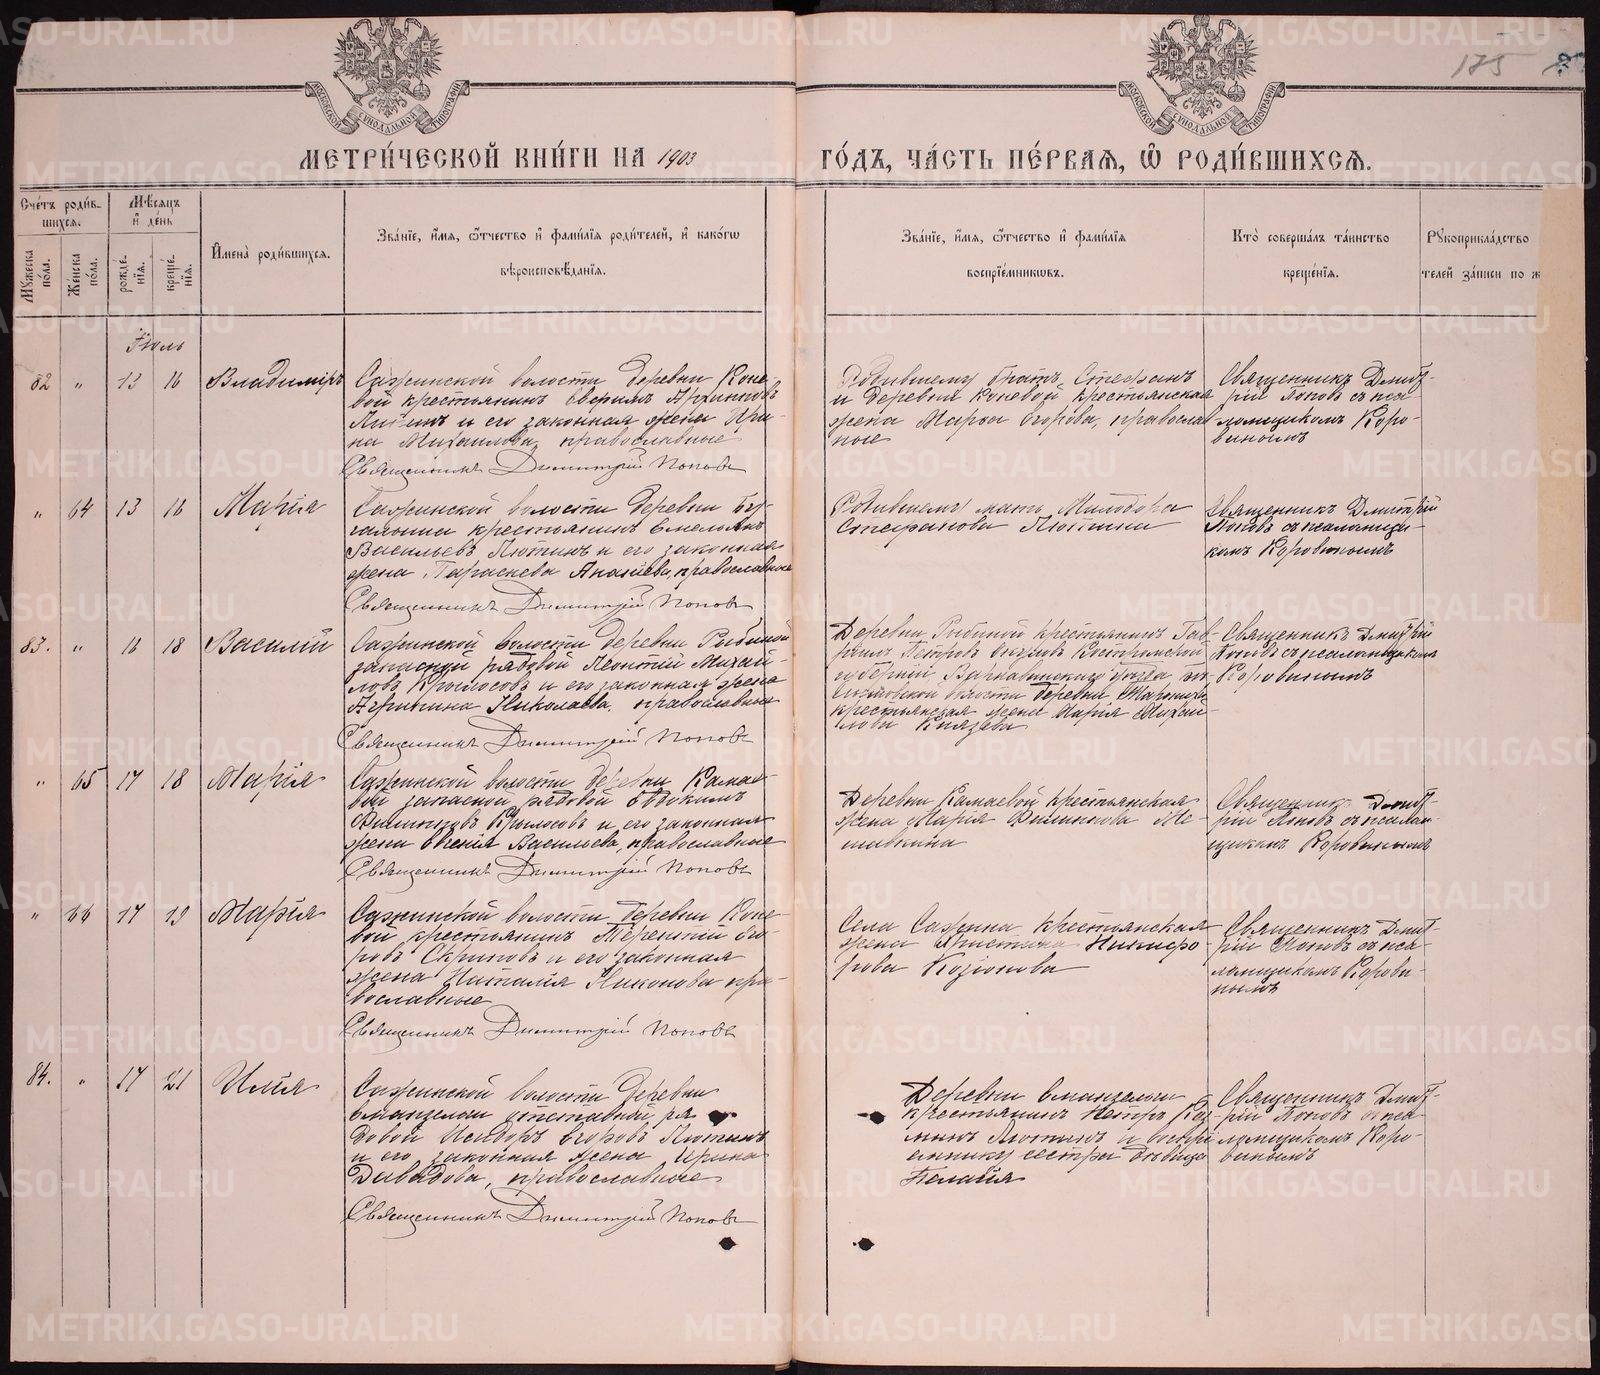 175
МЕТРИ́ЧЕСКОЙ КНИ́ГИ НА 1903
ГО́ДЪ, ЧА́СТЬ ПЕ́РВАЯ, Ѡ҆ РОДИ́ВШИХСЯ.
Сче́тъ роди́в-
шихся.
Мꙋжеска по́ла.
Же́нска по́ла.
Мѣ́сяцъ и҆ де́нь
рожде́-
нїя.
креще́-
нїя.
И҆мена̀ роди́вшихся.
Зва́нїе, и҆́мя, ѻ҆́тчество и҆ фами́лїя роди́телей, и҆ како́гѡ
вѣроисповѣ́данїя.
Зва́нїе, и҆́мя, ѻ҆́тчество и҆ фами́лїя
воспрїе́мникѡвъ.
Кто̀ соверша́лъ та́инство
креще́нїя.
Рꙋкоприкла́дство
телей за́писи по ж
Іюль
82 „ 13 16 Владиміръ
Сажинской волости деревни Коне-
вой крестьянинъ
и его законная жена Ири-
на Михаилова, православные
Священникъ Димитрій Поповъ
Родившему братъ Стефанъ
и деревни Коневой крестьянская
жена Марѳа Егорова, православ-
ные
Священникъ Дмит-
рій Поповъ съ пса-
ломщикомъ Коро-
винымъ
„ 64 13 16 Марія
Сажинской волости деревни Бу-
галыша крестьянинъ Емельянъ
Васильевъ Лютинъ и его законная
жена Параскева, православные
Священникъ Димитрій Поповъ
Родившему мать
Стефанова
Священникъ Дмитрій
Поповъ съ псаломщи-
комъ Коровинымъ
83. „ 16 18 Василій
Сажинской волости деревни Рыбиной
запасной рядовой Леонтій Михай-
ловъ Крылосовъ и его законная жена
Агрипина Николаева, православные
Священникъ Димитрій Поповъ
Деревни Рыбиной крестьянинъ Гав-
рилъ Петровъ Костромской
губерніи Варнавинскаго уѣзда
волости деревни
крестьянская жена Марія Михай-
лова Князева
Священникъ Дмитрій
Поповъ съ псаломщикомъ
Коровинымъ
„ 65 17 18 Марія
Сажинской волости деревни Камае-
вой запасной рядовой Евдокимъ
Филипповъ Крылосовъ и его законная
жена Евгенія Васильева, православные
Священникъ Димитрій Поповъ
Деревни Камаевой крестьянская
жена Марія Филиппова Ме-
Священникъ Дмит-
рій Поповъ съ псалом-
щикомъ Коровинымъ
„ 66 17 19 Марія
Сажинской волости деревни Коне-
вой крестьянинъ Терентій Его-
ровъ и его законная
жена Наталія Никонова пра-
вославные
Священникъ Димитрій Поповъ
Села Сажина крестьянская
жена Христина Никифо-
рова Козіонова
Священникъ Дмит-
рій Поповъ съ пса-
ломщикомъ Корови-
нымъ
84. „ 17 21 Илія
Сажинской волости деревни
отставной ря
довой Исидоръ Егоровъ Лютинъ
и его законная жена Ирина
Давыдова, православные
Священникъ Димитрій Поповъ
Деревни
крестьянинъ Несторъ
Лютинъ и
сестра дѣвица
Пелагія
Священникъ Дмит-
рій Поповъ съ пса-
ломщикомъ Коро-
винымъ
METRIKI.GASO-URAL.RU